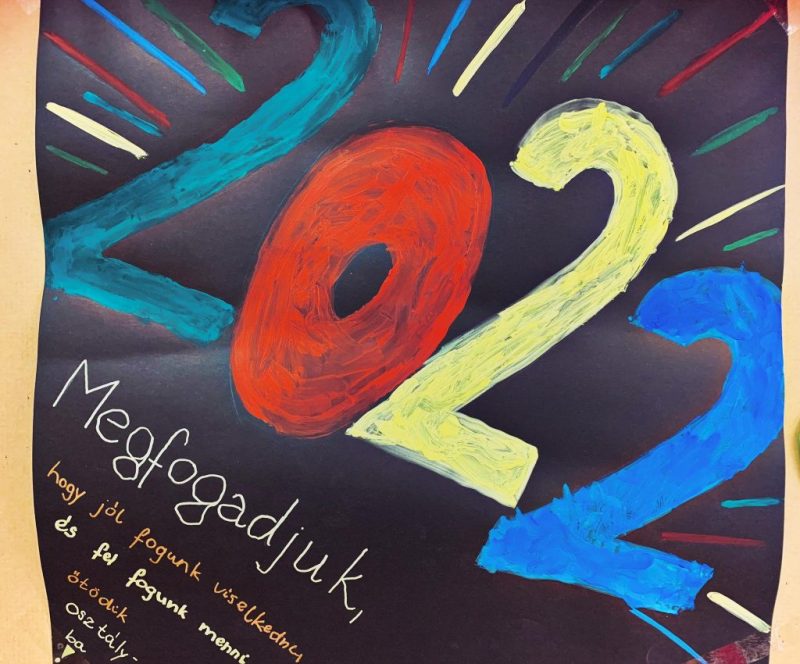 2022
Megfogadjuk,
hogy jól fogunk viselkedni,
és fel fogunk menni
ötödik
osztály-
ba!